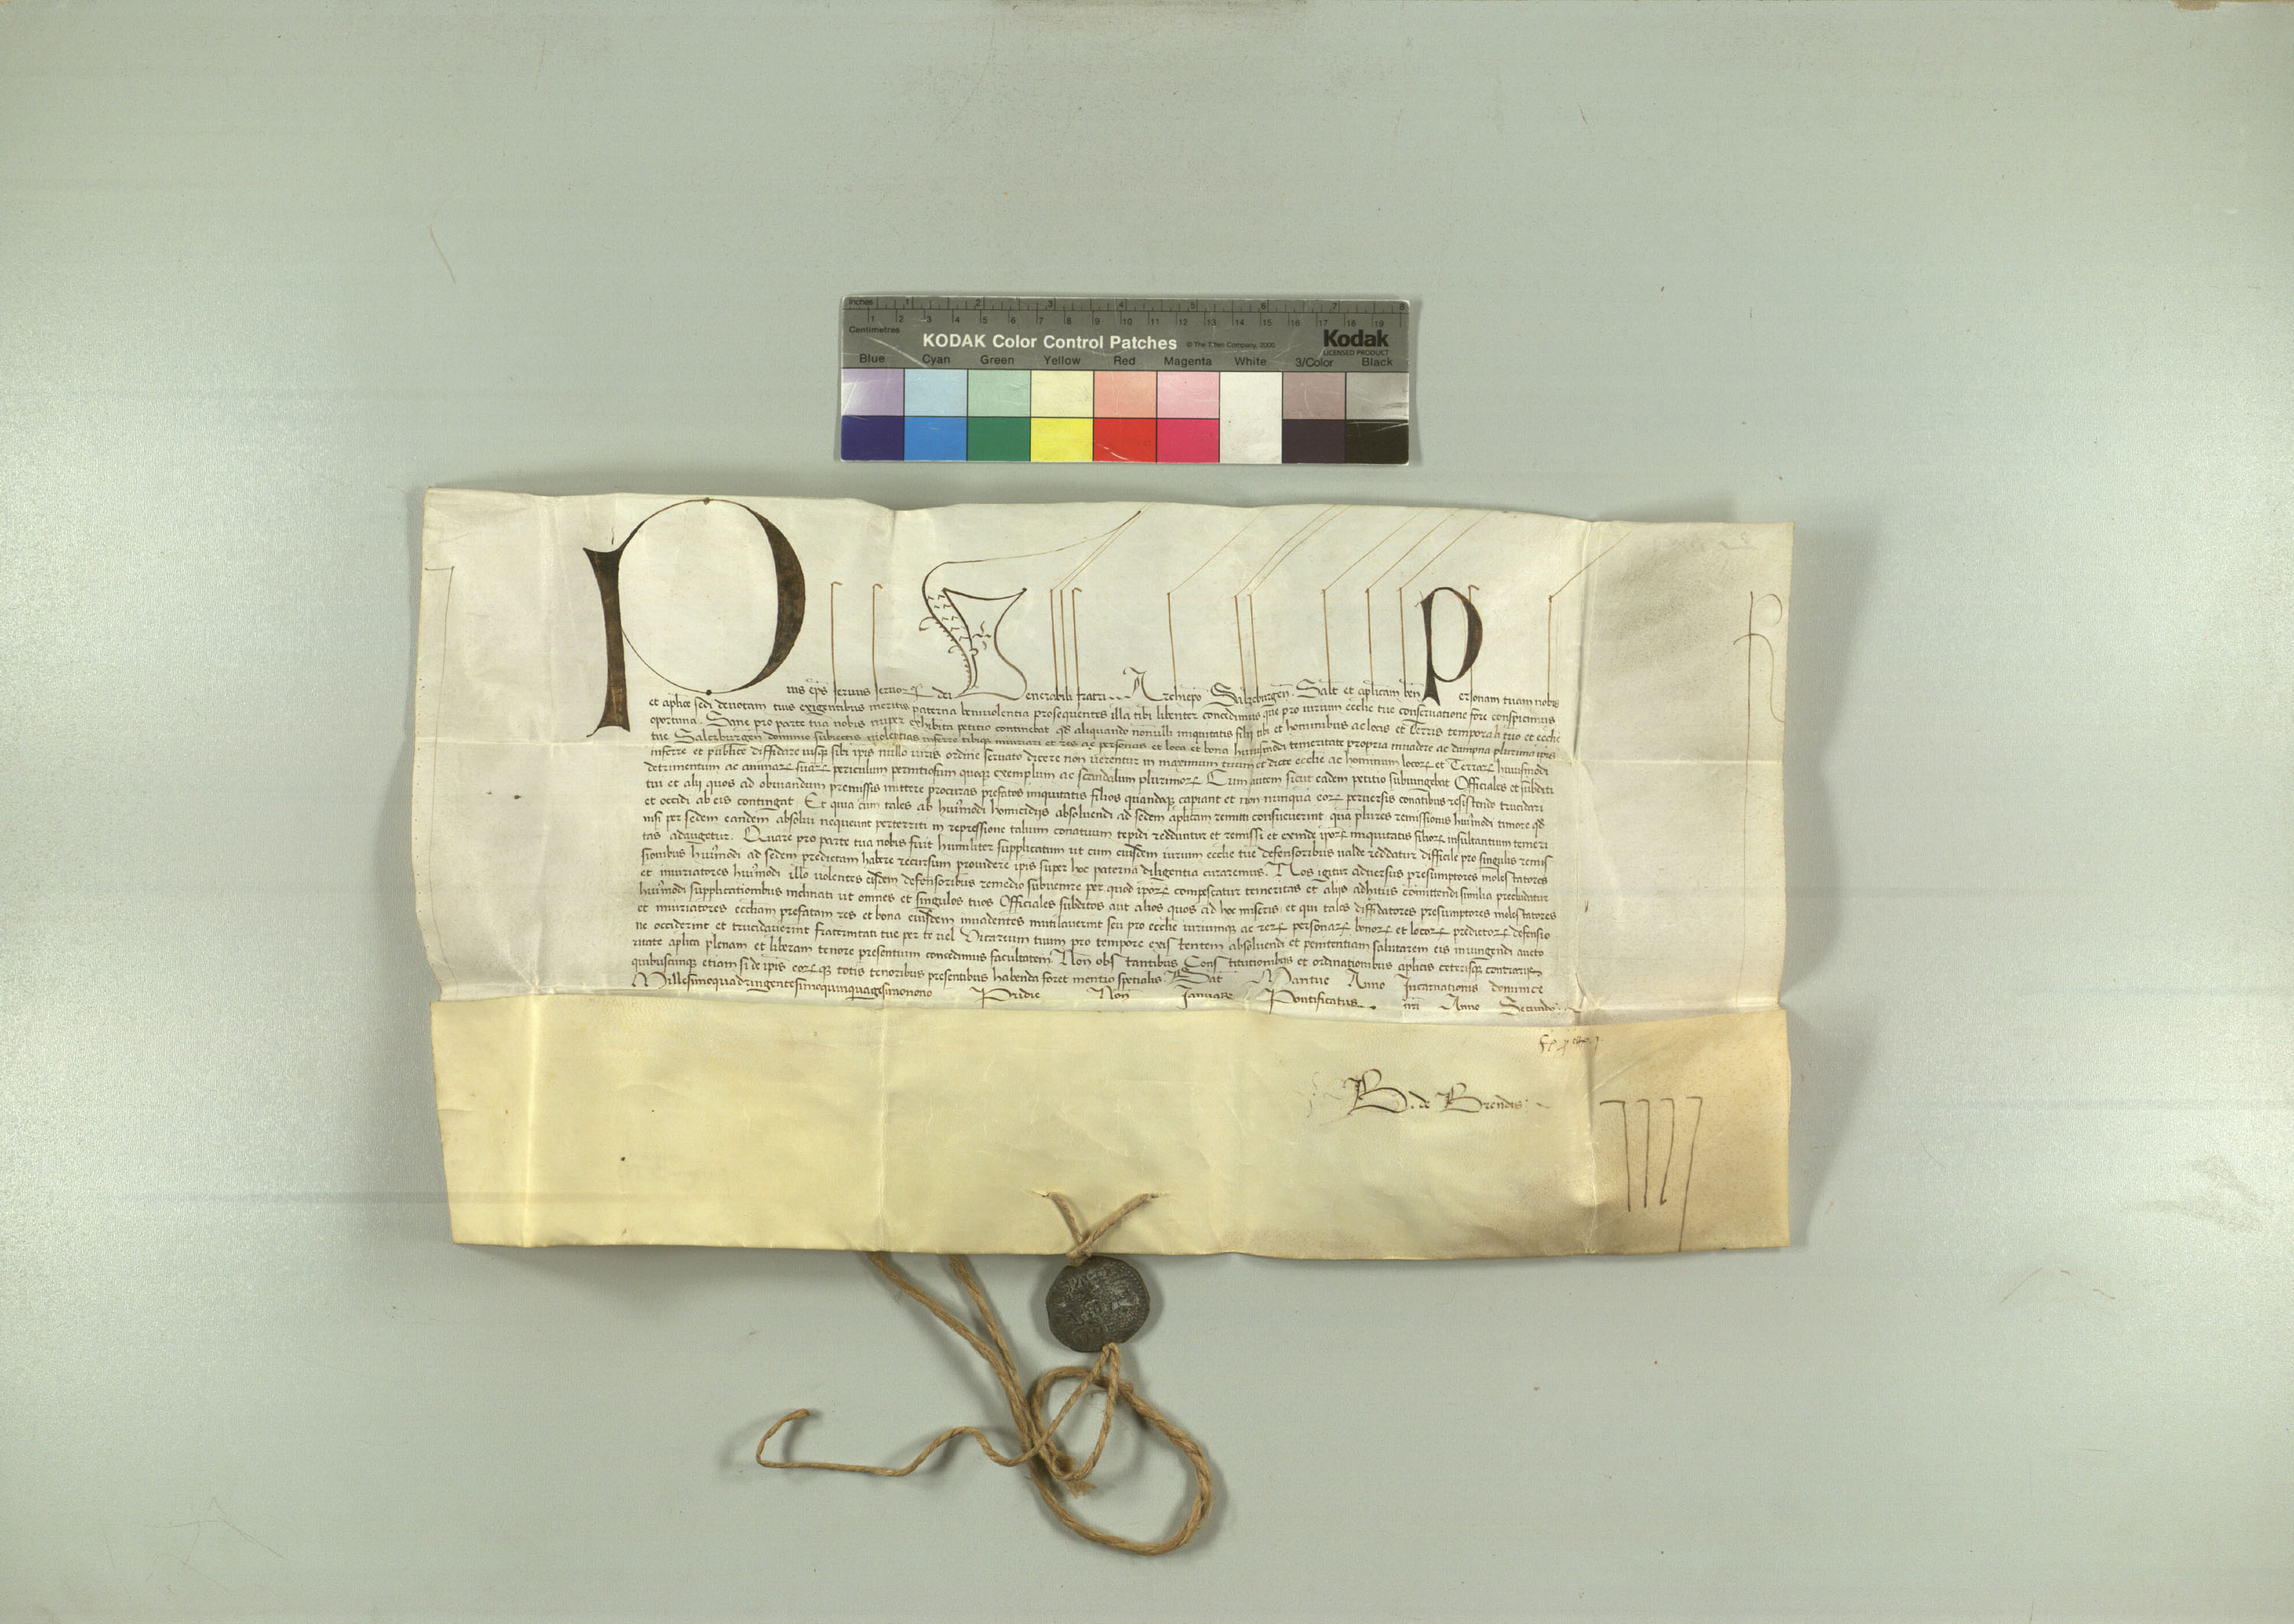 Inches 1 2 3 4 5 6 7 8
Centimetres 1 2 3 4 5 6 7 8 9 10 11 12 13 14 15 16 17 18 19
KODAK Color Control Patches © The Tiffen Company, 2000 Kodak
LICENSED PRODUCT
Blue Cyan Green Yellow Red Magenta White 3/Color Black
Pius eps servus servorꝝ dei Venerabili fratri .. Archiepo Salzeburgen. Salt et aplicam ben Personam tuam nobis
et aplice sedi devotam tuis exigentibus meritis paterna benivolentia prosequentes illa tibi libenter concedimus que pro iurium ecclie tue conservatione fore conspicimus
oportuna. Sane pro parte tua nobis nuper exhibita petitio continebat qd aliquando nonnulli iniquitatis filij tibi et hominibus ac locis et Terris temporali tuo et ecclie
tue Salczburgen dominio subiectis violentias inferre tibique iniuriari et res ac personas et loca et bona huiusmodi temeritate propria invadere ac dampna plurima ipis
inferre et publice diffidare iusque sibi ipis nullo iuris ordine servato dicere non verentur in maximum tuum et dicte ecclie ac hominum locorꝝ et Terrarꝝ huiusmodi
detrimentum ac animarꝝ suarꝝ periculum pernitiosum quoque exemplum ac scandalum plurimorꝝ Cum autem sicut eadem petitio subiungebat Officiales et subditi
tui et alij quos ad obviandum premissis mittere procuras prefatos iniquitatis filios quandoque capiant et non nunqua eorꝝ perversis conatibus resistendo trucidari
et occidi ab eis contingat. Et quia cum tales ab huiusmodi homicidijs absolvendi ad sedem aplicam remitti consueverint quia plures remissionis huiusmodi timore qd
nisi per sedem eandem absolvi nequeunt perterriti in repressione talium conatuum tepidi redduntur et remissi et exinde iporꝝ iniquitatis filiorꝝ insultantium temeri
tas adaugetur. Quare pro parte tua nobis fuit humiliter supplicatum ut cum eiusdem iurium ecclie tue defensoribus valde reddatur difficile pro singulis remis
sionibus huiusmodi ad sedem predictam habere recursum providere ipis super hoc paterna diligentia curaremus. Nos igitur adversus presumptores molestatores
et iniuriatores huiusmodi illo volentes eisdem defensoribus remedio subvenire per quod iporꝝ compescatur temeritas et alijs aditus comittendi similia precludatur
huiusmodi supplicationibus inclinati ut omnes et singulos tuos Officiales subditos aut alios quos ad hoc miseris et qui tales diffidatores presumptores molestatores
et iniuriatores eccliam prefatam res et bona eiusdem invadentes mutilaverint seu pro ecclie iuriumque ac rerꝝ personarꝝ bonorꝝ et locorꝝ predictorꝝ defensio
ne occiderint et trucidaverint fraternitati tue per te vel Vicarium tuum pro tempore existentem absolvendi et penitentiam salutarem eis iniungendi aucto
ritate aplica plenam et liberam tenore presentium concedimus facultatem Non obstantibus Constitutionibus et ordinationibus aplicis ceterisque contrarijs
quibuscunque etiam si de ipis eorꝝque totis tenoribus presentibus habenda foret mentio spetialis. Dat Mantue Anno Incarnationis dominice
Millesimoquadringentesimoquinquagesimonono Pridie Non Ianuarꝝ Pontificatus nri Anno Secundo
B. de Brendis